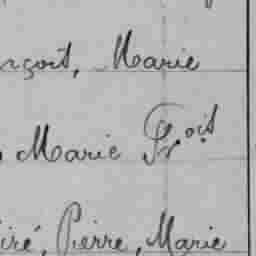 nçoit, Marie
Marie Fr.oit
iré, Pierre, Marie